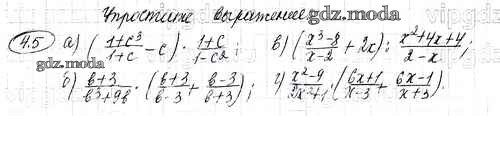 Упростите выражение
gdz.moda
4.5 а) ((1+c³)/(1+c) - c) · (1+c)/(1-c²); в) ((x³-8)/(x-2) + 2x) : (x²+4x+4)/(2-x);
gdz.moda
б) (в+3)/(в³+9в) · ((в+3)/(в-3) + (в-3)/(в+3)); г) (x²-9)/(2x²+1) · ((6x+1)/(x-3) + (6x-1)/(x+3)).
gdz.moda